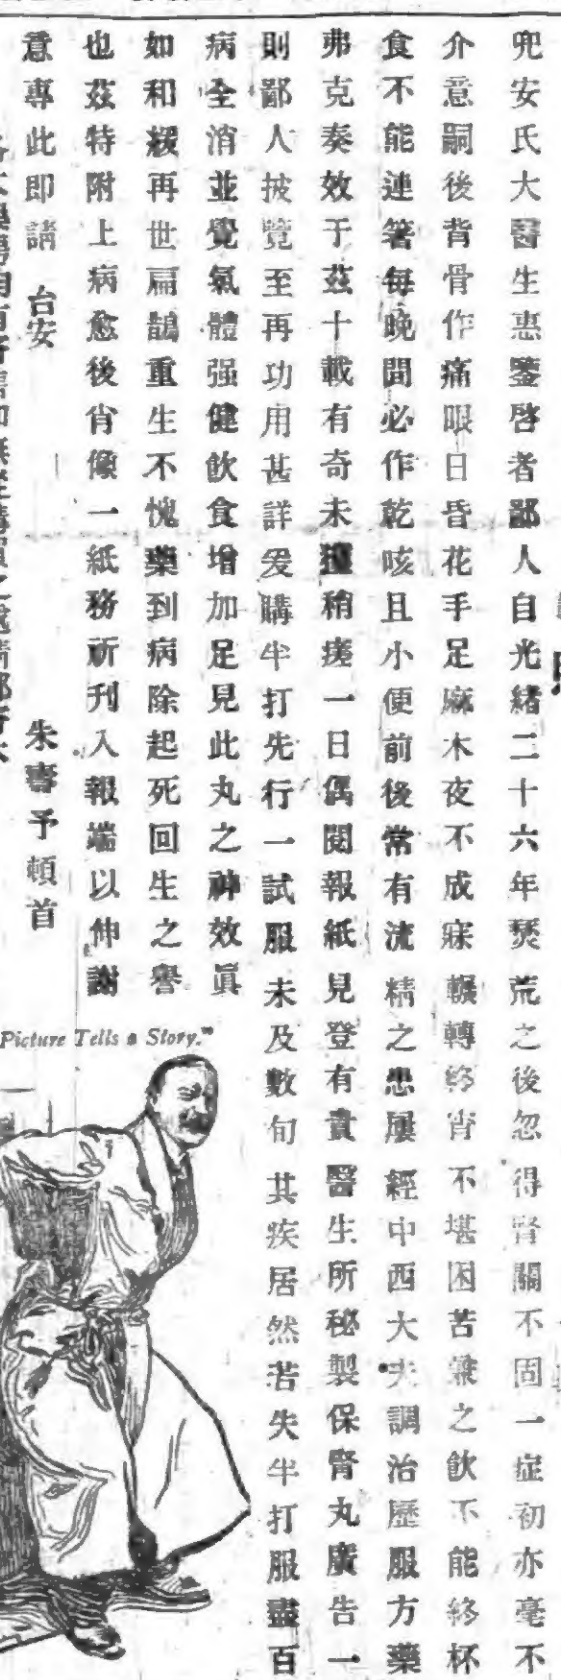 兜安氏大醫生惠鑒啓者鄙人自光緒二十六年煐荒之後忽得腎關不固一症初亦毫不
介意嗣後背骨作痛眼日昏花手足麻木夜不成寐輾轉終宵不堪困苦兼之飲不能終杯
食不能連箸每晚間必作乾咳且小便前後常有流精之患屢經中西大夫調治歷服方藥
弗克奏效于茲十載有奇未獲稍痊一日偶閱報紙見登有貴醫生所秘製保腎丸廣告一
則鄙人披覽至再功用甚詳爰購半打先行一試服未及數旬其疾居然若失半打服盡百
病全消並覺氣體强健飲食增加足見此丸之神效眞
如和緩再世扁鵲重生不愧藥到病除起死回生之譽
也茲特附上病愈後肖像一紙務祈刊入報端以伸謝
意專此即請 台安
朱壽予頓首
Picture Tells a Story."